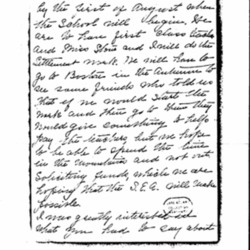 by the first of August when
the School will begin. We
are to have first Class teachers
and Miss Stone and I will do the
Settlement work. We will have to
go to Boston in the Autumn to
see some friends who told us
that if we would start the
work and then go to them they
would give something to help
pay the teachers but we hope
to be able to spend the time
in the mountains and not
soliciting funds, which we are
hoping that the S.E.G. will make
possible.
I was greatly interested in
what you had to say about